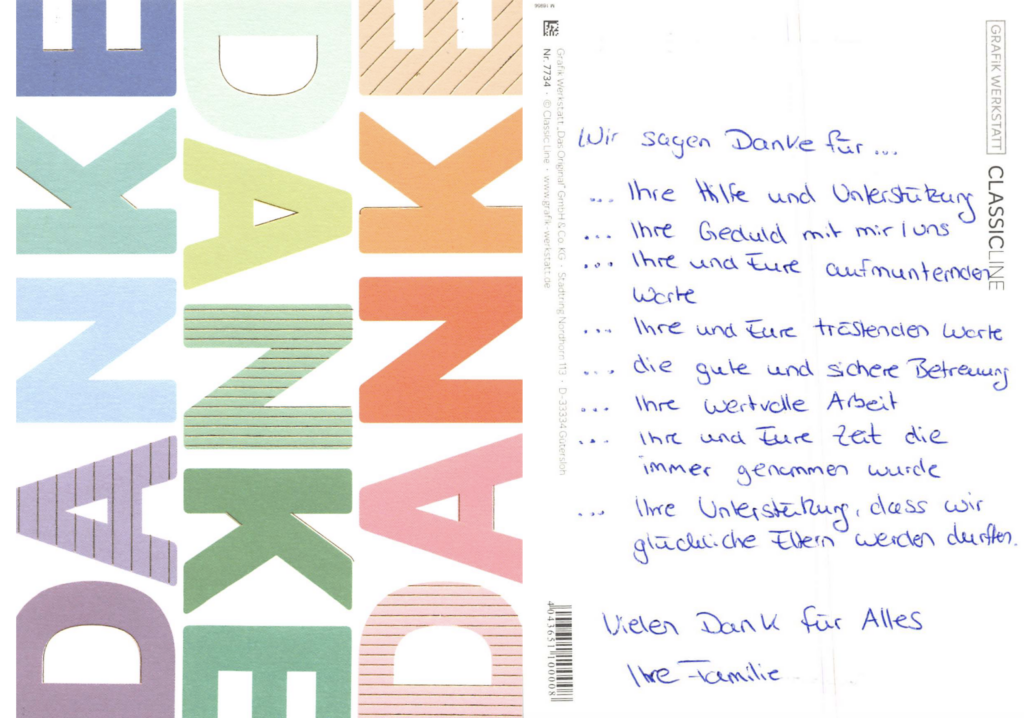 DANKE
DANKE
DANKE
Grafik Werkstatt „Das Original" GmbH & Co. KG · Stadtring Nordhorn 113 · D-33334 Gütersloh
Nr. 7734 · © Classic Line · www.grafik-werkstatt.de
4 043651 100008
GRAFIK WERKSTATT CLASSICLINE
Wir sagen Danke für ...
... Ihre Hilfe und Unterstützung
... Ihre Geduld mit mir / uns
... Ihre und Eure aufmunternden
Worte
... Ihre und Eure tröstenden Worte
... die gute und sichere Betreuung
... Ihre wertvolle Arbeit
... Ihre und Eure Zeit die
immer genommen wurde
... Ihre Unterstützung, dass wir
glückliche Eltern werden durften.
Vielen Dank für Alles
Ihre Familie